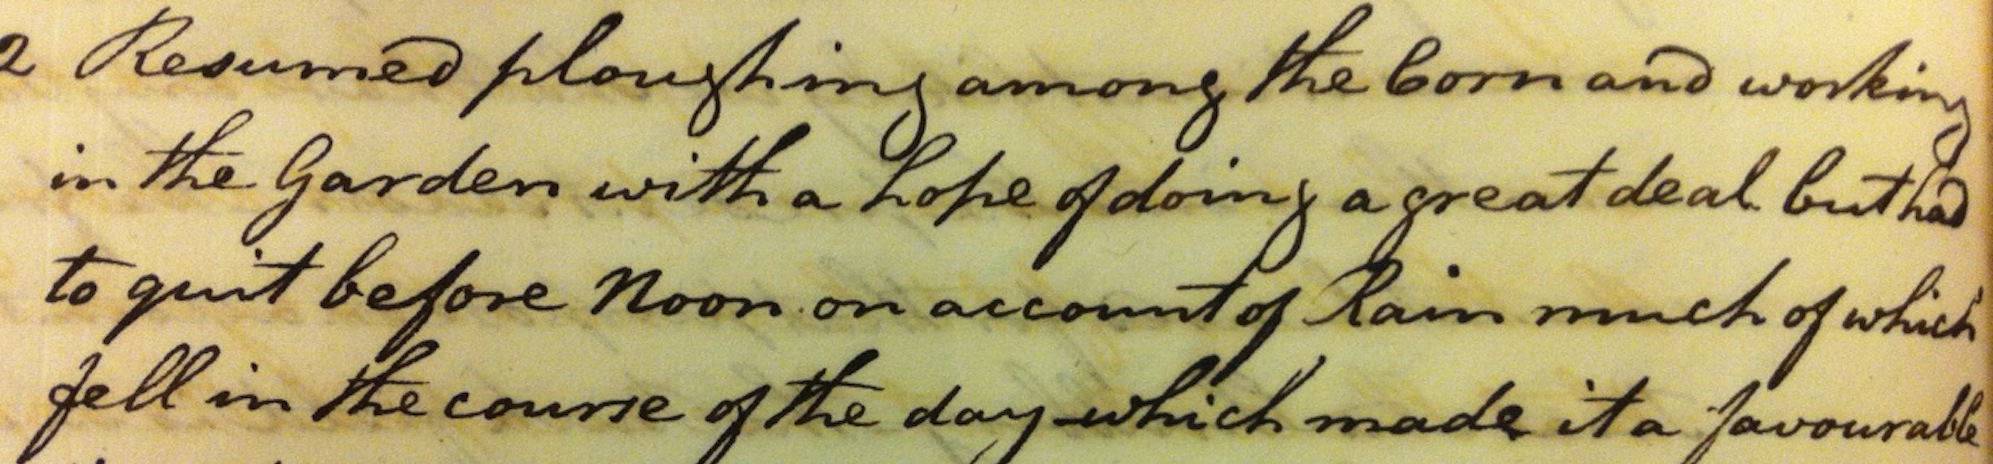 2 Resumed ploughing among the Corn and working
in the Garden with a hope of doing a great deal but had
to quit before Noon on account of Rain much of which
fell in the course of the day which made it a favourable